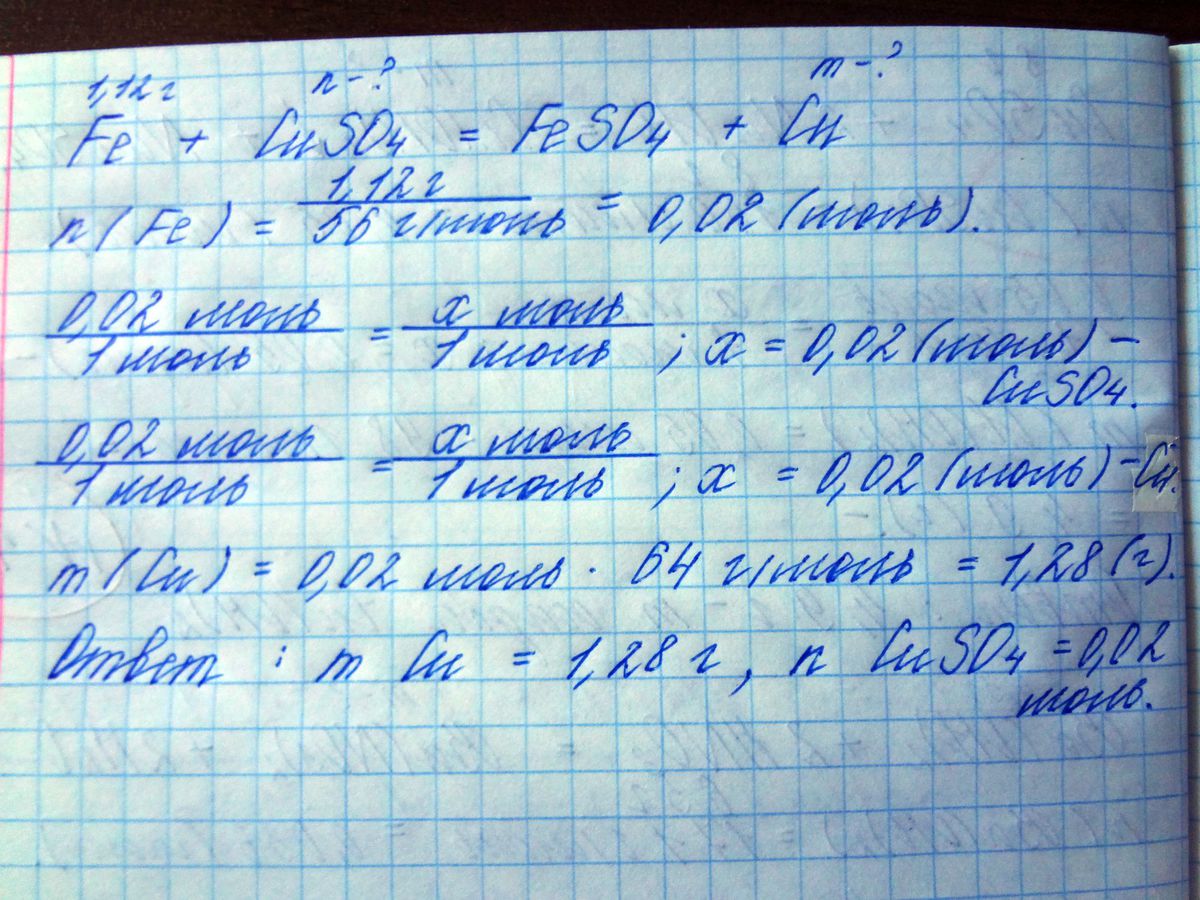 1,12 г n – ? m – ?
Fe + CuSO4 = FeSO4 + Cu
n (Fe) = 1,12 г / 56 г/моль = 0,02 (моль).
0,02 моль / 1 моль = x моль / 1 моль ; x = 0,02 (моль) –
CuSO4.
0,02 моль / 1 моль = x моль / 1 моль ; x = 0,02 (моль) – Cu.
m (Cu) = 0,02 моль · 64 г/моль = 1,28 (г).
Ответ : m Cu = 1,28 г , n CuSO4 = 0,02
моль.